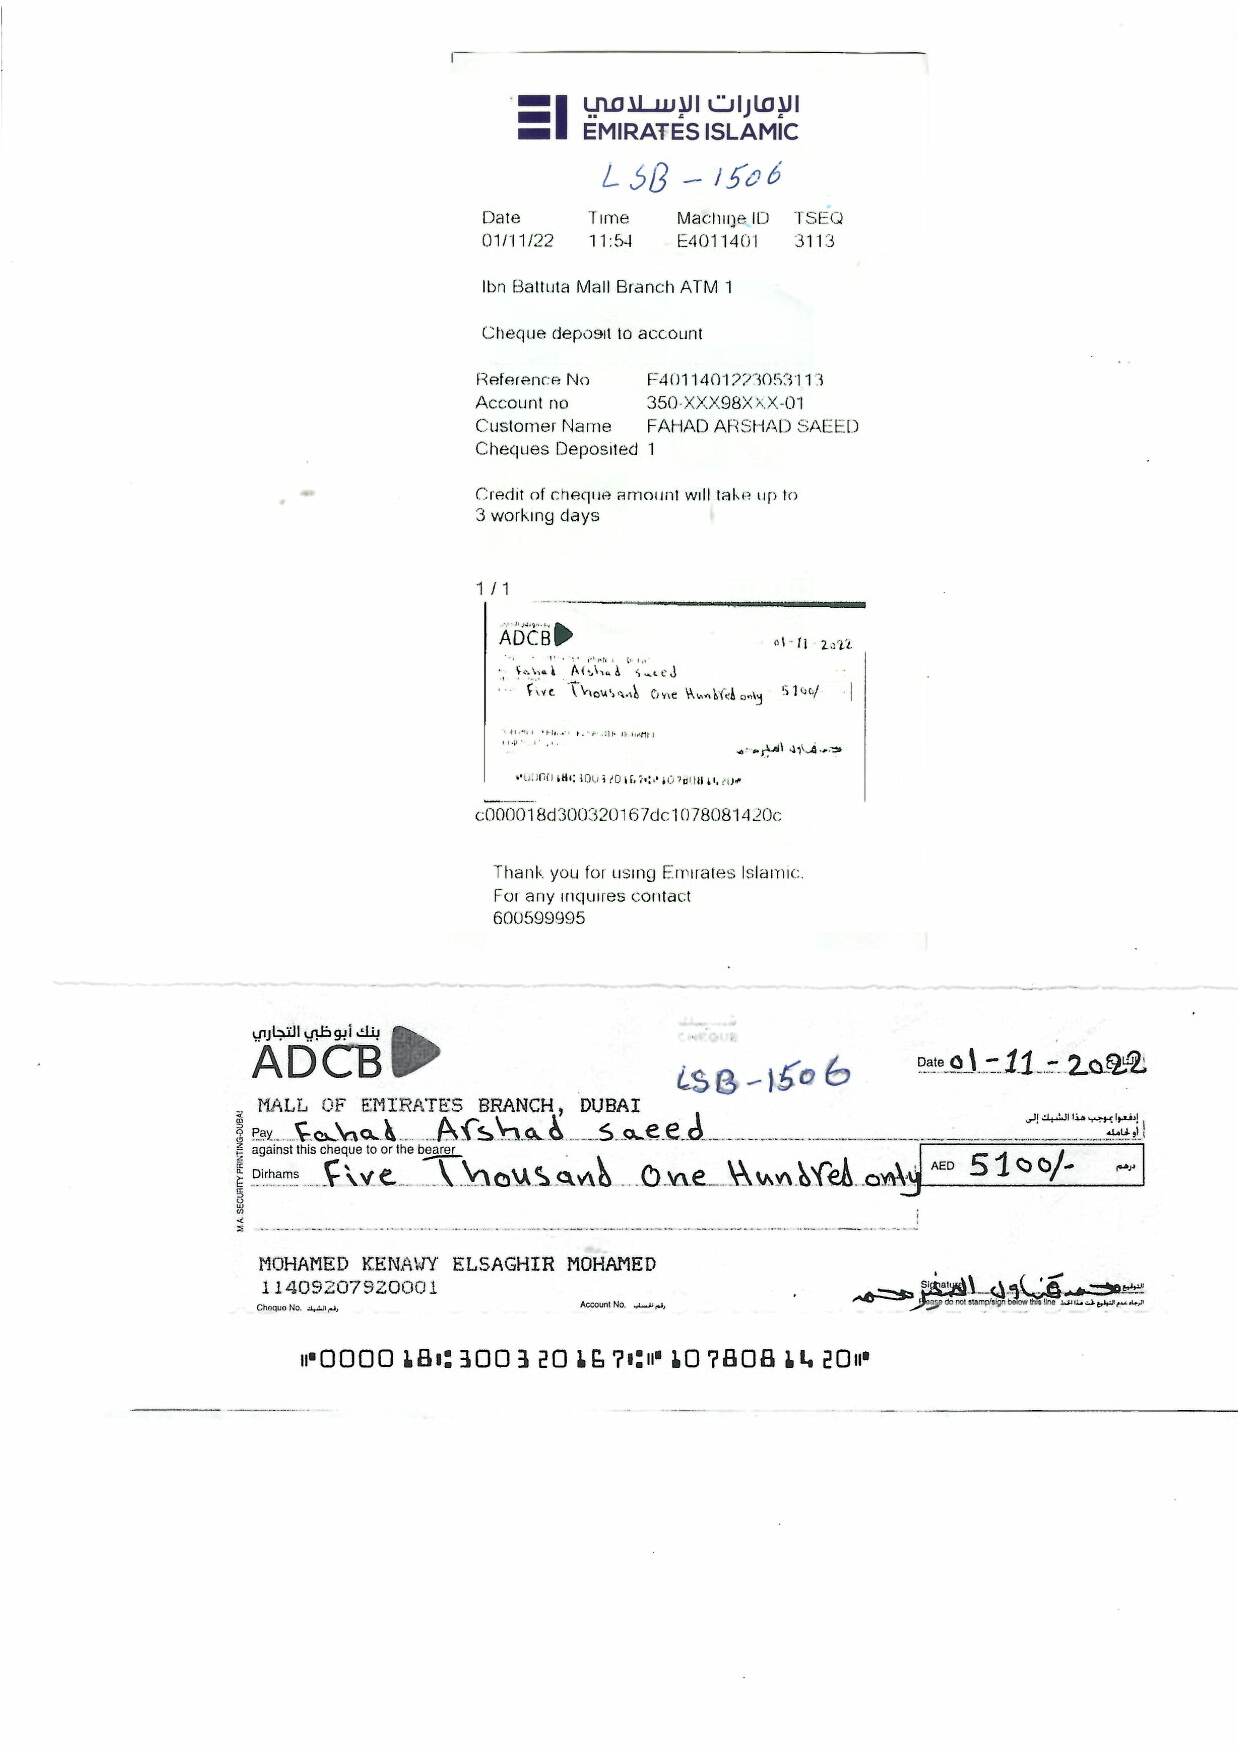 الإمارات الإسلامي
EMIRATES ISLAMIC
LSB - 1506
Date Time Machine ID TSEQ
01/11/22 11:54 E4011401 3113
Ibn Battuta Mall Branch ATM 1
Cheque deposit to account
Reference No E4011401223053113
Account no 350-XXX98XXX-01
Customer Name FAHAD ARSHAD SAEED
Cheques Deposited 1
Credit of cheque amount will take up to
3 working days
1 / 1
ADCB
01-11-2022
Fahad Arshad Saeed
Five Thousand One Hundred only 5100/
c000018d300320167dc1078081420c
Thank you for using Emirates Islamic.
For any inquires contact
600599995
بنك أبوظبي التجاري
ADCB
CHEQUE
LSB-1506
Date 01-11-2022
MALL OF EMIRATES BRANCH, DUBAI
إدفعوا بموجب هذا الشيك إلى
Pay Fahad Arshad Saeed
أو لحامله
against this cheque to or the bearer
Dirhams Five Thousand One Hundred only AED 5100/- درهم
M.A. SECURITY PRINTING-DUBAI
MOHAMED KENAWY ELSAGHIR MOHAMED
11409207920001
Signature التوقيع
Cheque No. رقم الشيك Account No. رقم الحساب
Please do not stamp/sign below this line
⑈000018⑆300320167⑆⑈1078081420⑈